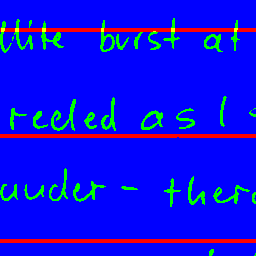 llite burst at
reeled as I
under - there